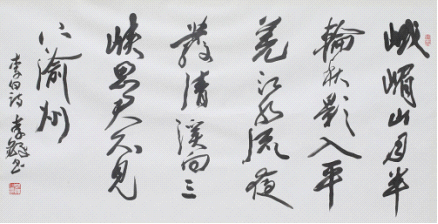 峨嵋山月半
輪秋影入平
羌江水流夜
發清溪向三
峡思君不見
下渝州
李白詩 李 书